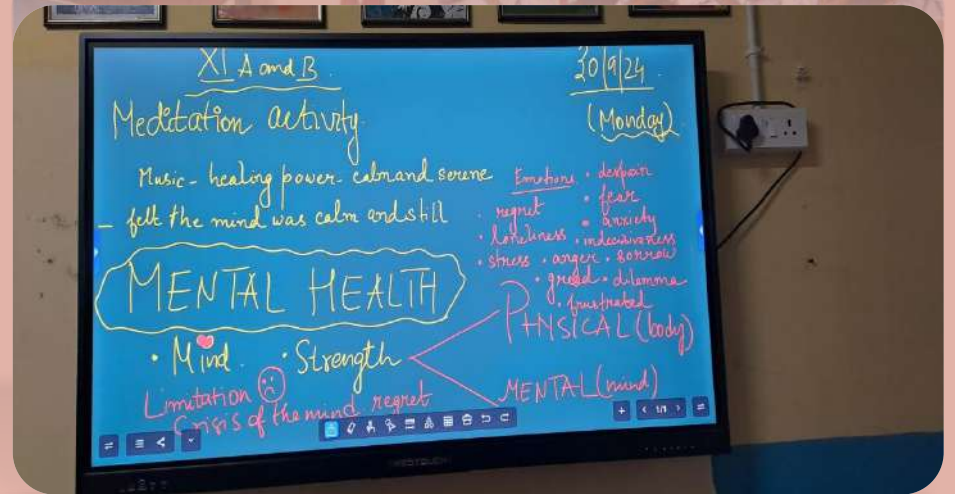 XI A and B.
30/9/24.
(Monday)
Meditation activity.
Music - healing power - calm and serene
- felt the mind was calm and still
Emotions • despair
• fear
• regret • anxiety
• loneliness • indecisiveness
• stress • anger • sorrow
• greed • dilemma
• frustrated
MENTAL HEALTH
• Mind. • Strength
PHYSICAL (body)
MENTAL (mind)
Limitation
Crisis of the mind regret
1/1